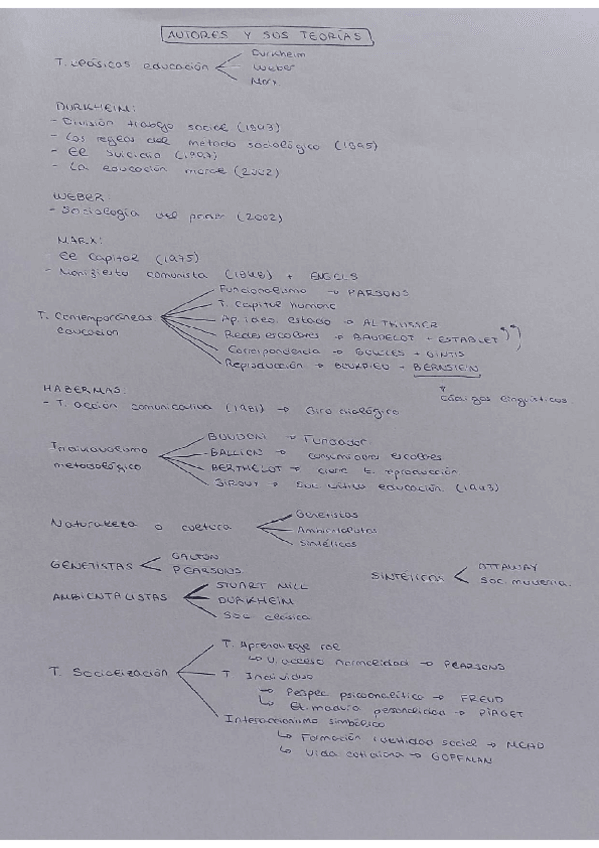 AUTORES Y SUS TEORÍAS
T. clásicas educación
Durkheim
Weber
Marx
DURKHEIM:
- División trabajo social (1893)
- Las reglas del método sociológico (1895)
- El suicidio (1897)
- La educación moral (2002)
WEBER:
- Sociología del (2002)
MARX:
El Capital (1975)
- Manifiesto comunista (1848) + ENGELS
T. Contemporáneas educación
Funcionalismo → PARSONS
T. Capital humano
Ap. ideo. estado → ALTHUSSER
Redes escolares → BAUDELOT + ESTABLET
Correspondencia → BOWLES + GINTIS
Reproducción → BOURDIEU - BERNSTEIN
códigos lingüísticos
HABERMAS:
- T. acción comunicativa (1981) → Giro dialógico
Individualismo metodológico
BOUDON → Fundador
BALLION → consumidores escolares
BERTHELOT → T. reproducción
educación (1993)
Naturaleza o cultura
Genetistas
Ambientalistas
Sintéticos
GENETISTAS
GALTON
PEARSONS
SINTÉTICOS
OTTAWAY
Soc. moderna.
AMBIENTALISTAS
STUART MILL
DURKHEIM
Soc. clásica
T. Socialización
T. Aprendizaje rol
↳ normalidad → PEARSONS
T. Individuo
→ Perspec psicoanalítico → FREUD
↳ personalidad → PIAGET
Interaccionismo simbólico
↳ Formación identidad social → MEAD
↳ Vida cotidiana → GOFFMAN